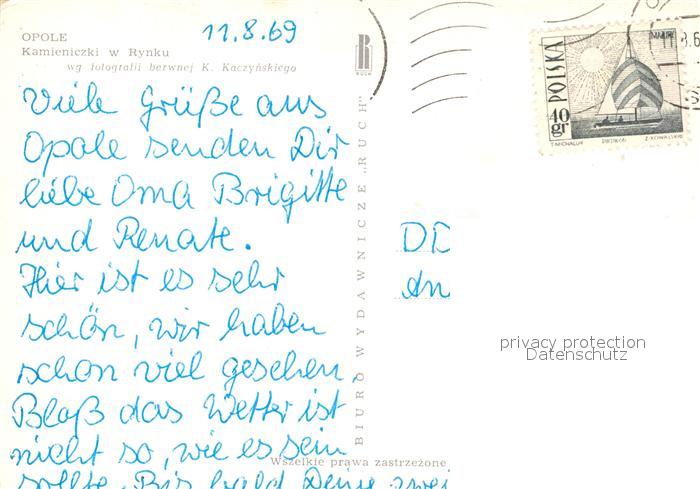 OPOLE
Kamieniczki w Rynku
wg fotografii berwnej K. Kaczyńskiego
RUCH
11.8.69
Viele Grüße aus
Opole senden Dir
liebe Oma Brigitte
und Renate.
Hier ist es sehr
schön, wir haben
schon viel gesehen,
Bloß das Wetter ist
nicht so, wie es sein
sollte. Bis bald Deine zwei
BIURO WYDAWNICZE „RUCH"
Wszelkie prawa zastrzeżone
POLSKA
40 gr
T. MICHALUK
Z. KOWALSKI
DD
An
privacy protection
Datenschutz